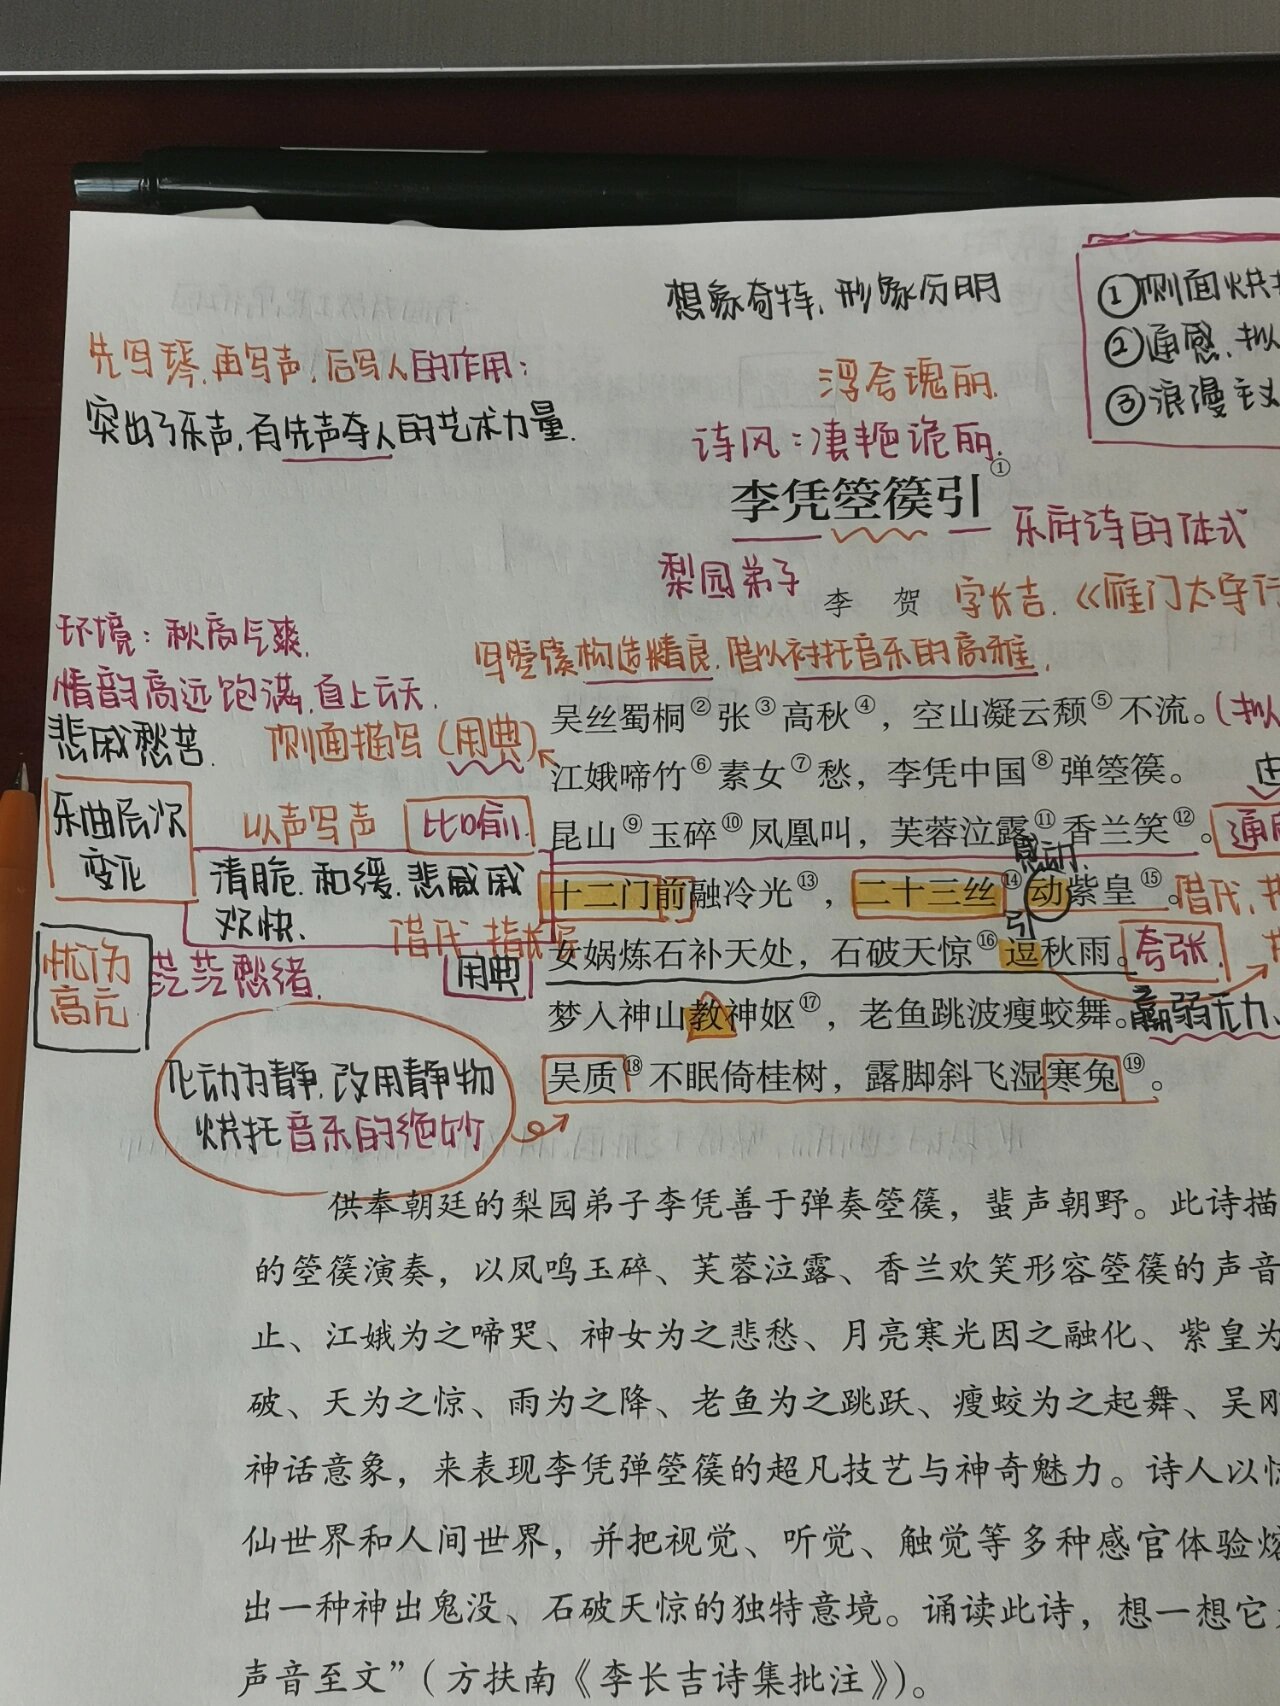 想象奇特，形象分明
①侧面烘托
②通感，拟
③浪漫主义
先写琴，再写声，后写人的作用：
突出了乐声，有先声夺人的艺术力量．
浮会瑰丽．
诗风：凄艳诡丽．
李凭箜篌引①
乐府诗的体式
梨园弟子
李 贺
字长吉．《雁门太守行
环境：秋高气爽．
写箜篌构造精良，借以衬托音乐的高雅．
情韵高远饱满，直上云天．
吴丝蜀桐②张③高秋④，空山凝云颓⑤不流。(拟
悲戚愁苦．
侧面描写（用典）
江娥啼竹⑥素女⑦愁，李凭中国⑧弹箜篌。
乐曲层次
变化
以声写声
比喻．
昆山⑨玉碎⑩凤凰叫，芙蓉泣露⑪香兰笑⑫。通感
感动．
清脆．和缓．悲戚
欢快．
十二门前融冷光⑬，二十三丝⑭动紫皇⑮。借代，
借代，指长
引
忧伤
高亢
茫茫愁绪．
用典
女娲炼石补天处，石破天惊⑯逗秋雨。夸张．
梦入神山教神妪⑰，老鱼跳波瘦蛟舞。羸弱无力、
化动为静，改用静物
烘托音乐的绝妙
吴质⑱不眠倚桂树，露脚斜飞湿寒兔⑲。
供奉朝廷的梨园弟子李凭善于弹奏箜篌，蜚声朝野。此诗描
的箜篌演奏，以凤鸣玉碎、芙蓉泣露、香兰欢笑形容箜篌的声音
止、江娥为之啼哭、神女为之悲愁、月亮寒光因之融化、紫皇为
破、天为之惊、雨为之降、老鱼为之跳跃、瘦蛟为之起舞、吴刚
神话意象，来表现李凭弹箜篌的超凡技艺与神奇魅力。诗人以惊
仙世界和人间世界，并把视觉、听觉、触觉等多种感官体验熔
出一种神出鬼没、石破天惊的独特意境。诵读此诗，想一想它
声音至文”（方扶南《李长吉诗集批注》）。